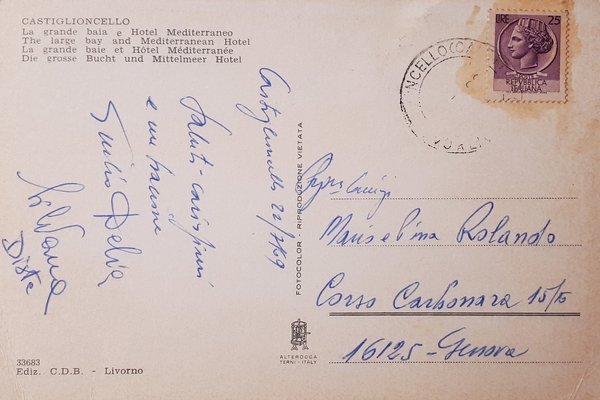 CASTIGLIONCELLO
La grande baia e Hotel Mediterraneo
The large bay and Mediterranean Hotel
La grande baie et Hôtel Méditerranée
Die grosse Bucht und Mittelmeer Hotel
Castiglioncello 22/7/69
Saluti carissimi
e un bacione
Giulio Delia
Silvana
33683
Ediz. C.D.B. - Livorno
FOTOCOLOR - RIPRODUZIONE VIETATA
ALTEROCCA
TERNI - ITALY
LIRE 25
REPVBBLICA
ITALIANA
NCELLO
Rolando
Corso Carbonara 15/5
16125 - Genova